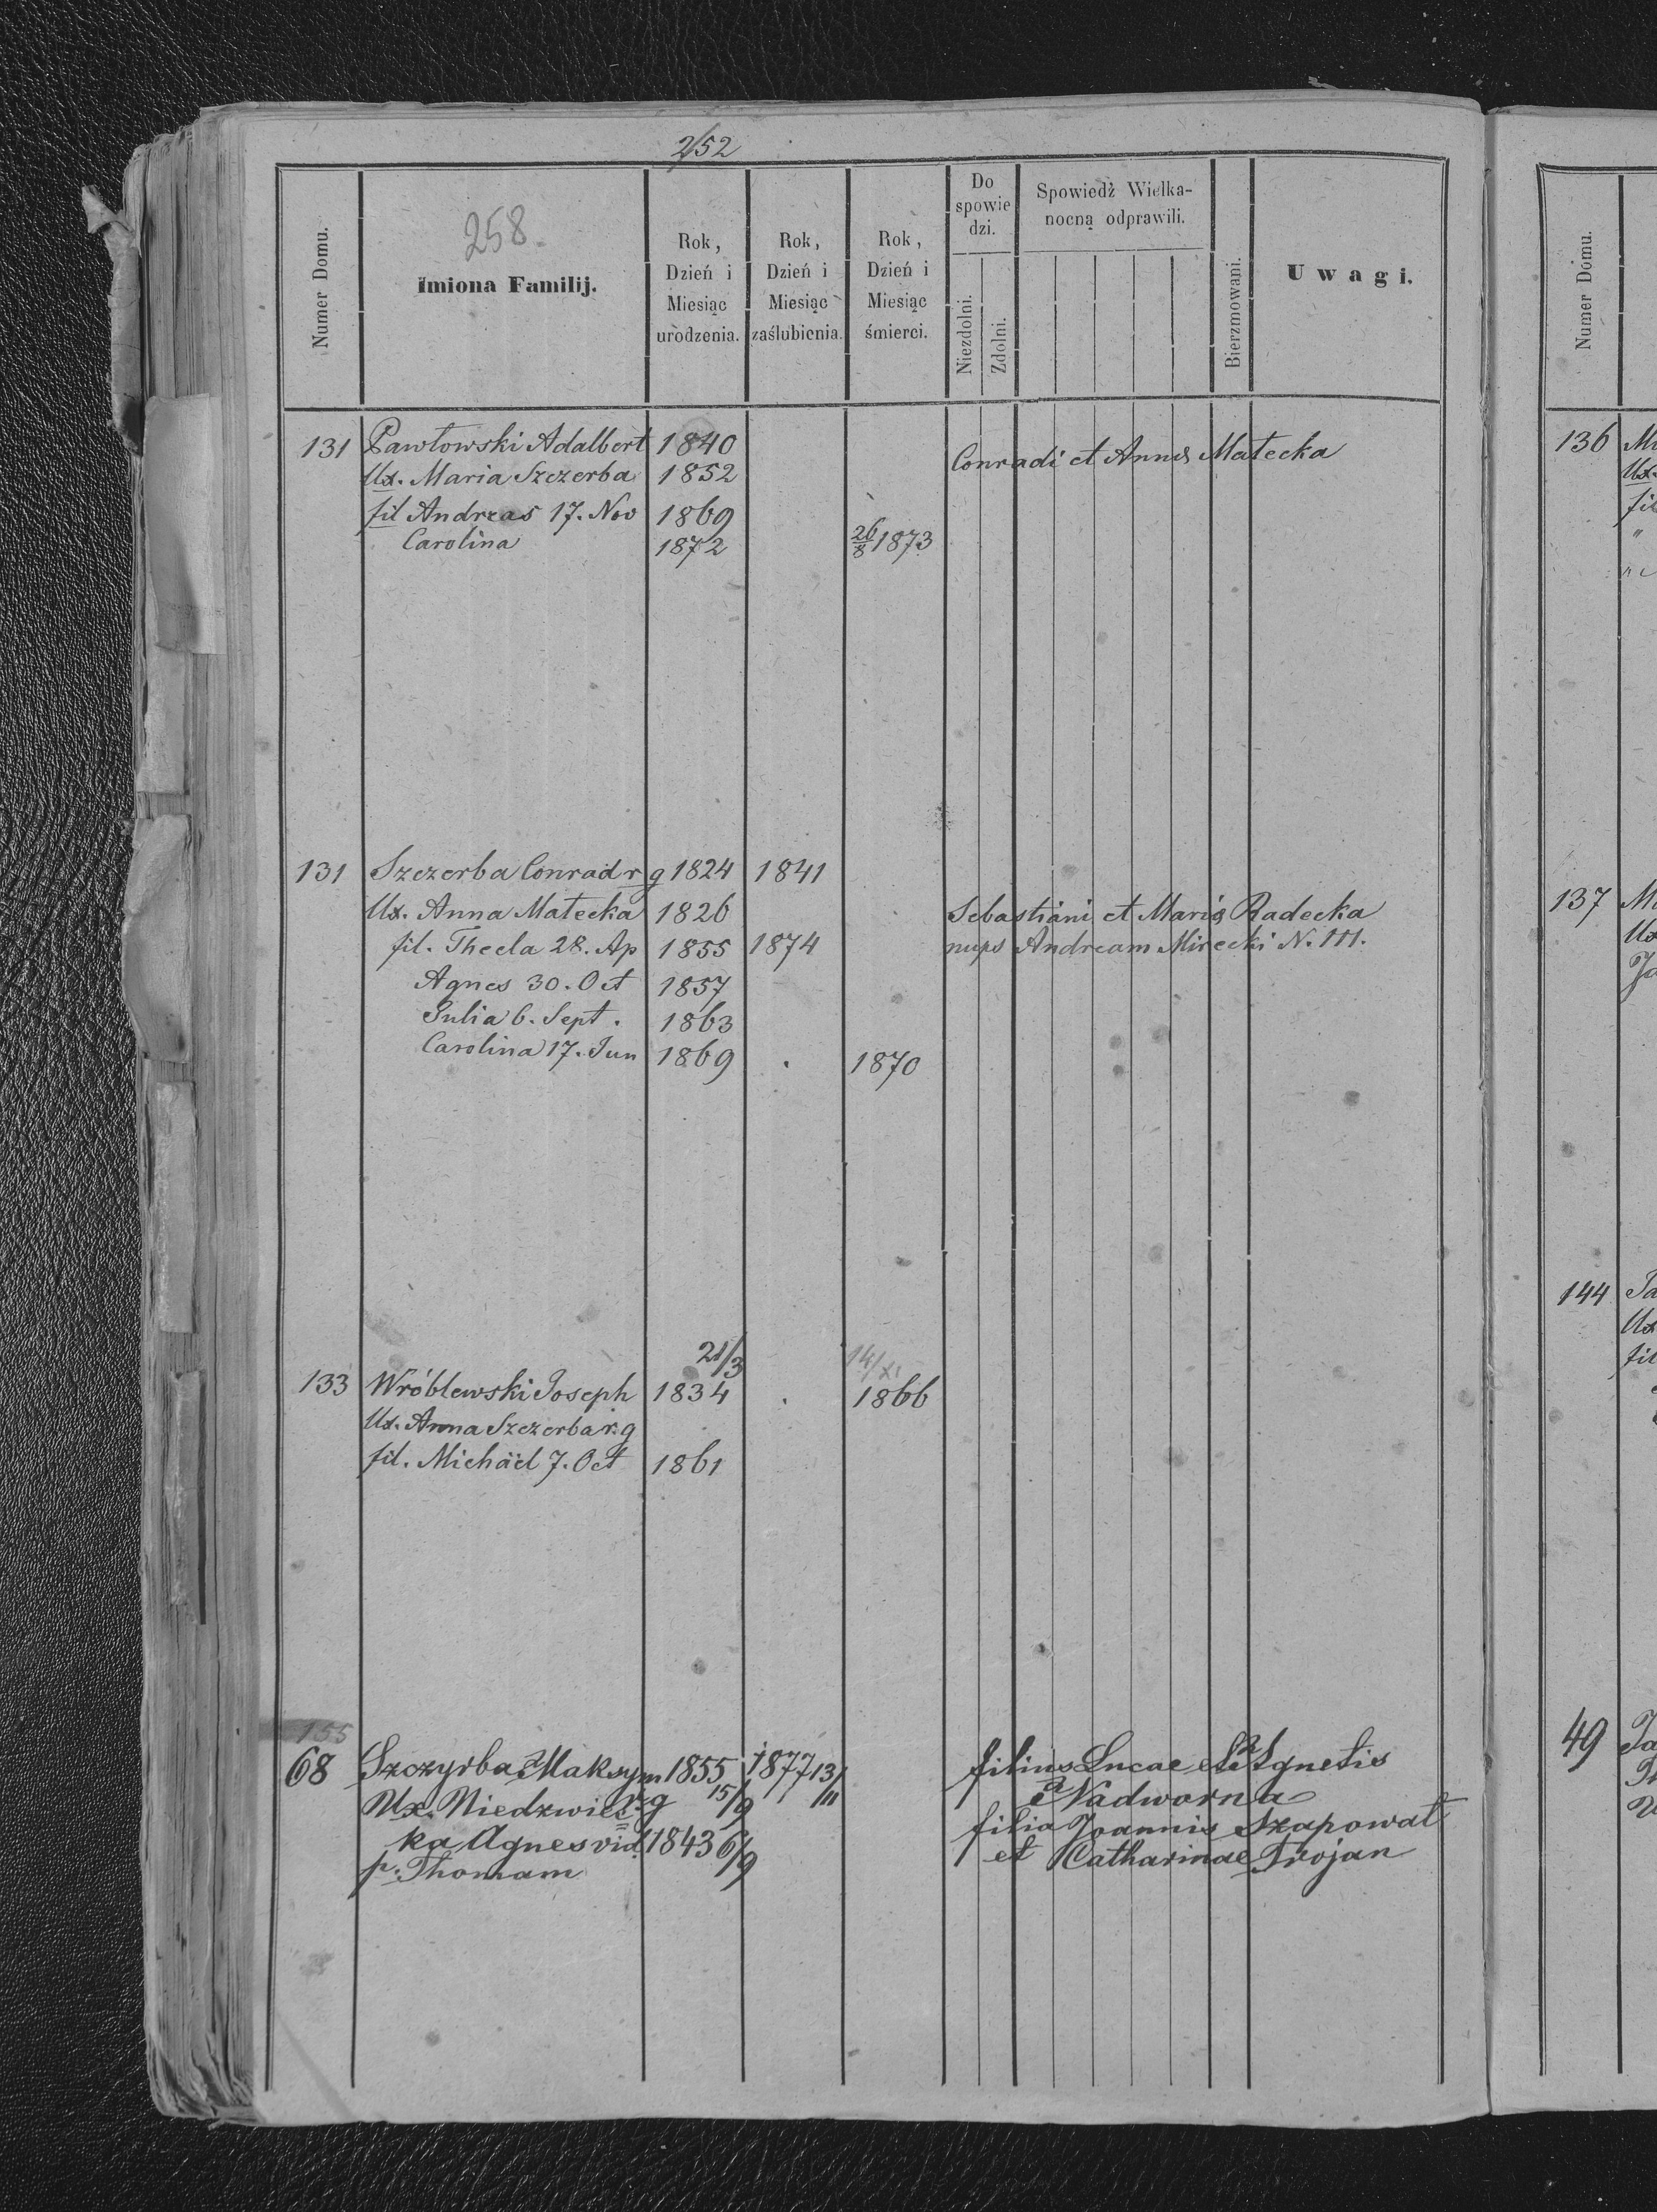 252
258.
Numer Domu.
Imiona Familij.
Rok,
Dzień i
Miesiąc
urodzenia.
Rok,
Dzień i
Miesiąc
zaślubienia.
Rok,
Dzień i
Miesiąc
śmierci.
Do
spowie
dzi.
Niezdolni.
Zdolni.
Spowiedź Wielka-
nocną odprawili.
Bierzmowani.
Uwagi.
131 Pawłowski Adalbert 1840
Ux. Maria Szczerba 1852 Conradi et Annæ Małecka
fil Andreas 17. Nov 1869
Carolina 1872 26/8 1873
131 Szczerba Conrad r g 1824 1841
Ux. Anna Małecka 1826 Sebastiani et Mariæ Radecka
fil. Thecla 28. Ap 1855 1874 nups Andream Mirecki N. 111.
Agnes 30. Oct 1857
Julia 6. Sept. 1863
Carolina 17. Jun 1869 1870
21/3 14/XI
133 Wróblewski Joseph 1834 1866
Ux. Anna Szczerba r. g
fil. Michäel 7. Oct 1861
155
68 Szczyrba Maksym 1855 1877 13/III filius Lucae et Agnetis
Ux. Niedzwiec r. g 15/9 Nadworna
ka Agnes vid. 1843 6/9 filia Joannis Szapował
p. Thomam et Catharinae Trojan
Numer Domu.
136
Ux.
fil
"
137
Ux
144
Ux
fil
49